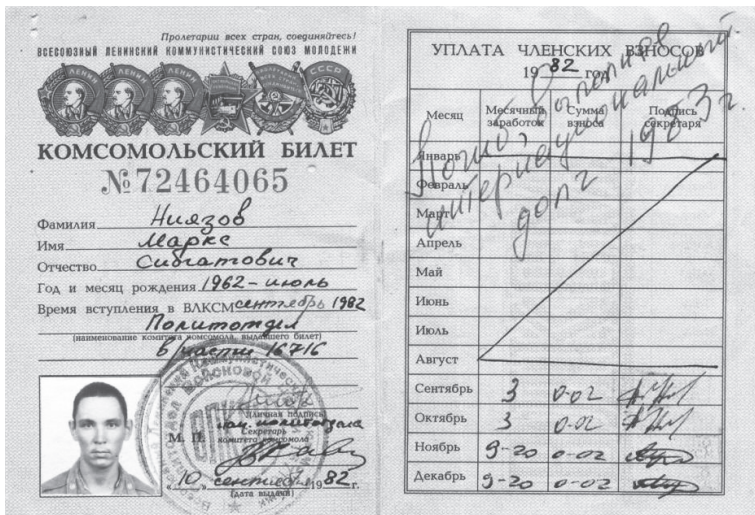 Пролетарии всех стран, соединяйтесь!
ВСЕСОЮЗНЫЙ ЛЕНИНСКИЙ КОММУНИСТИЧЕСКИЙ СОЮЗ МОЛОДЕЖИ
КОМСОМОЛЬСКИЙ БИЛЕТ
№ 72464065
Фамилия Ниязов
Имя Маркс
Отчество Сибгатович
Год и месяц рождения 1962 - июль
Время вступления в ВЛКСМ сентябрь 1982
Политотдел
(наименование комитета комсомола, выдавшего билет)
в/части 16716
Личная подпись
нач. политотдела
М. П. Секретарь
комитета комсомола
"10" сентября 1982 г.
(дата выдачи)
УПЛАТА ЧЛЕНСКИХ ВЗНОСОВ
1982 год
Месяц Месячный заработок Сумма взноса Подпись секретаря
Погиб, выполняя
интернациональный
долг 1983 г.
Январь
Февраль
Март
Апрель
Май
Июнь
Июль
Август
Сентябрь 3 0-02
Октябрь 3 0-02
Ноябрь 9-20 0-02
Декабрь 9-20 0-02